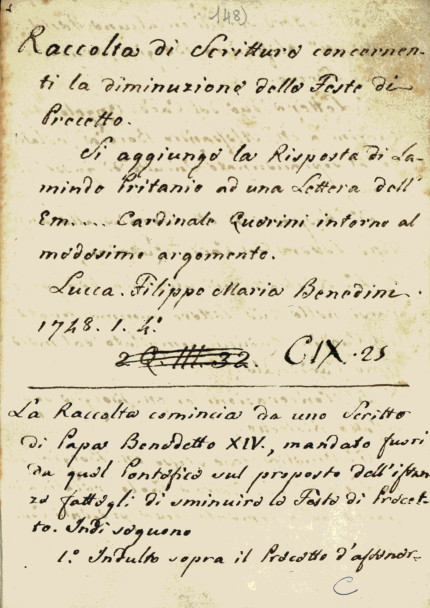 148)
Raccolta di Scritture concernen-
ti la diminuzione delle Feste di
Precetto.
Si aggiunge la Risposta di La-
mindo Pritanio ad una Lettera dell'
Em.... Cardinale Querini intorno al
medesimo argomento.
Lucca. Filippo Maria Benedini.
1748. 1. 4.º
2 Q. III. 32. CIX. 25
La Raccolta comincia da uno Scritto
di Papa Benedetto XIV., mandato fuori
da quel Pontefice sul proposto dell'istan-
za fattagli di sminuire le Feste di Precet-
to. Indi seguono
1.º Indulto sopra il Precetto d'astener-
C